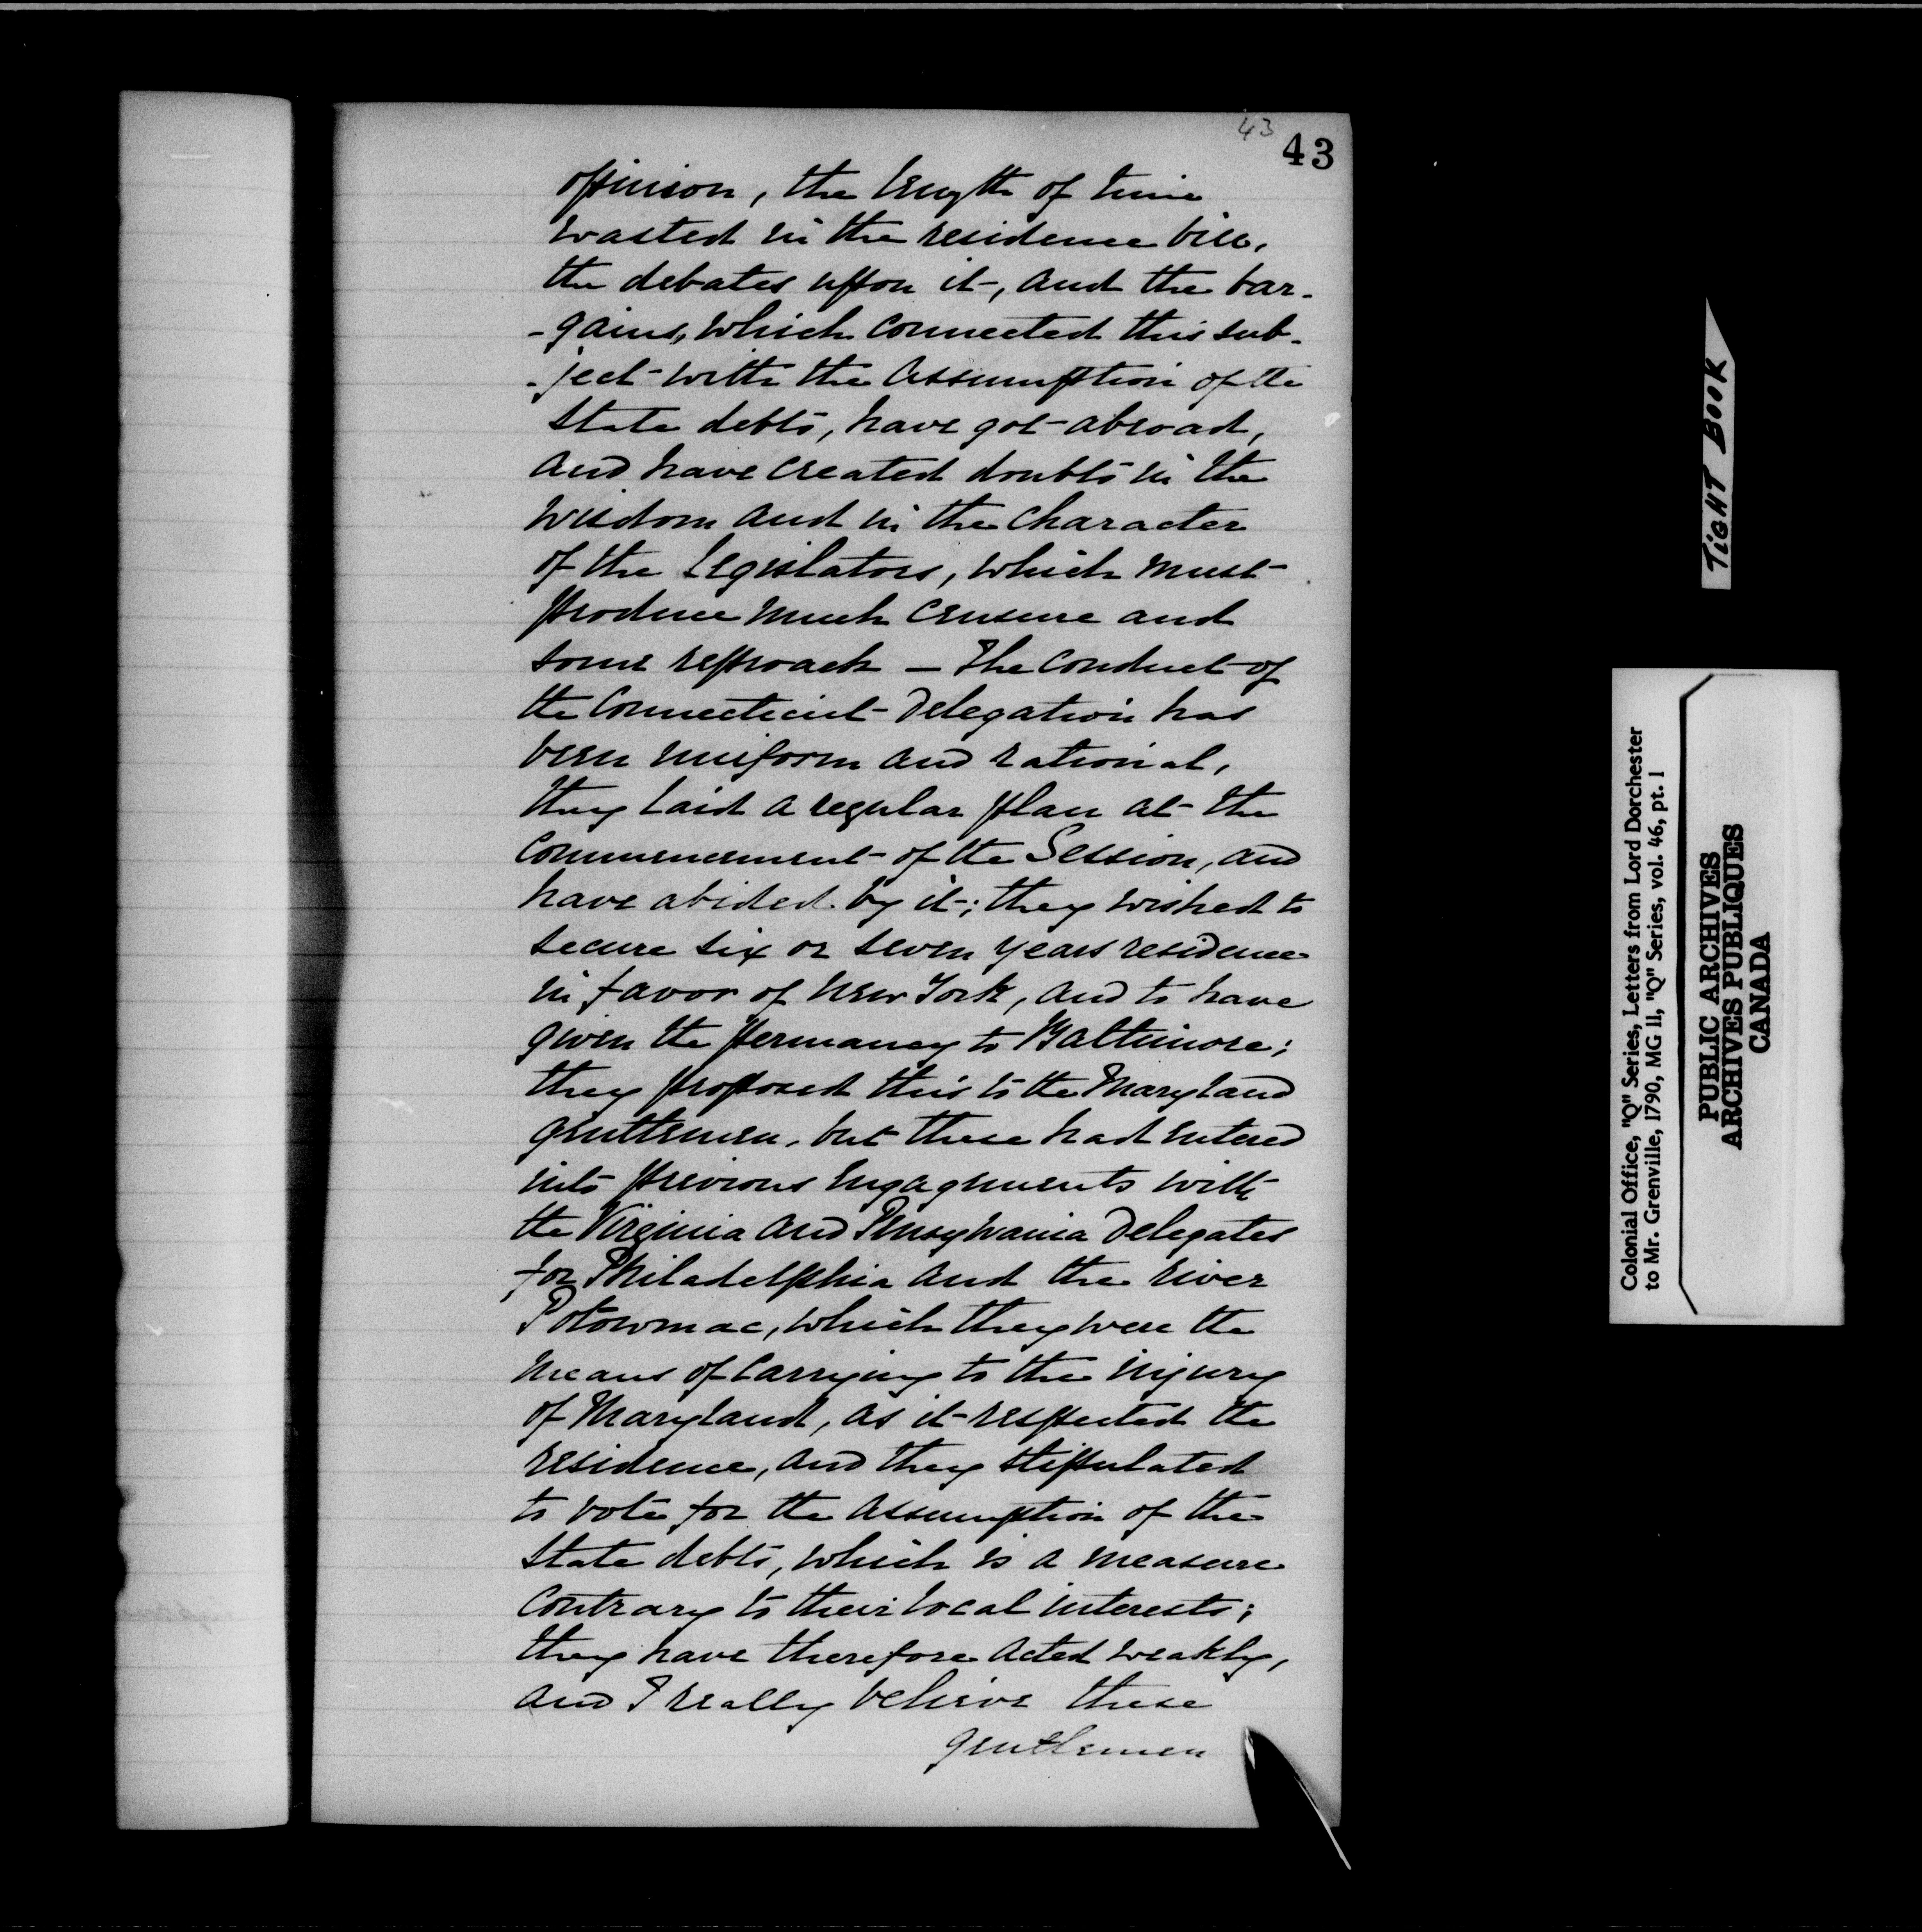 43
43
opinion, the length of time
wasted in the residence bill,
the debates upon it, and the bar-
-gains, which connected this sub-
-ject with the assumption of the
state debts, have got abroad,
and have created doubts in the
wisdom and in the character
of the Legislators, which must
produce much censure and
some reproach - The conduct of
the Connecticut Delegation has
been uniform and rational,
they laid a regular plan at the
commencement of the Session, and
have abided by it; they wished to
secure six or seven years residence
in favor of New York, and to have
given the permancy to Baltimore;
they proposed this to the Maryland
gentlemen, but these had entered
into previous engagements with
the Virginia and Pensylvania Delegates
for Philadelphia and the river
Potowmac, which they were the
means of carrying to the injury
of Maryland, as it respected the
residence, and they stipulated
to vote for the assumption of the
state debts, which is a measure
contrary to their local interests;
they have therefore acted weakly,
and I really believe these
gentlemen
TIGHT BOOK
Colonial Office, "Q" Series, Letters from Lord Dorchester
to Mr. Grenville, 1790, MG 11, "Q" Series, vol. 46, pt. 1
PUBLIC ARCHIVES
ARCHIVES PUBLIQUES
CANADA